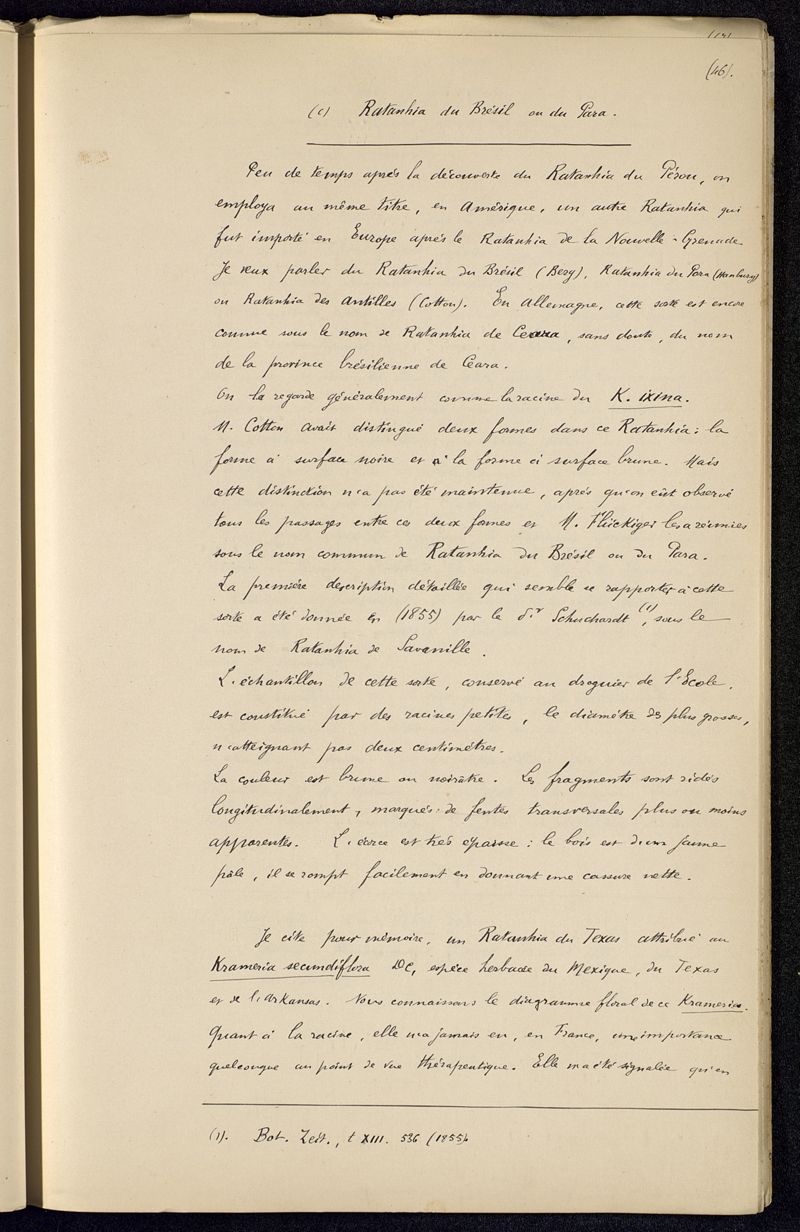 (46).
(c) Ratanhia du Brésil ou du Para.
Peu de temps après la découverte du Ratanhia du Pérou, on
employa au même titre, en Amérique, un autre Ratanhia qui
fut importé en Europe après le Ratanhia de la Nouvelle-Grenade.
Je veux parler du Ratanhia du Brésil (Berg), Ratanhia du Para (Hanbury)
ou Ratanhia des Antilles (Cotton). En Allemagne, cette sorte est encore
connue sous le nom de Ratanhia de Ceara, sans doute, du nom
de la province brésilienne de Ceara.
On la regarde généralement comme la racine du K. ixina.
M. Cotton avait distingué deux formes dans ce Ratanhia : la
forme à surface noire et la forme à surface brune. Mais
cette distinction n'a pas été maintenue, après qu'on eût observé
tous les passages entre ces deux formes et M. Flückiger les a réunies
sous le nom commun de Ratanhia du Brésil ou du Para.
La première description détaillée qui semble se rapporter à cette
sorte a été donnée en (1855) par le dr Schuchardt (1), sous le
nom de Ratanhia de Savanille.
L'échantillon de cette sorte, conservé au droguier de l'Ecole,
est constitué par des racines petites, le diamètre des plus grosses,
n'atteignant pas deux centimètres.
La couleur est brune ou noirâtre. Les fragments sont ridés
longitudinalement, marqués de fentes transversales plus ou moins
apparentes. L'écorce est très épaisse : le bois est d'un jaune
pâle, il se rompt facilement en donnant une cassure nette.
Je cite pour mémoire, un Ratanhia du Texas attribué au
Krameria secundiflora DC, espèce herbacée du Mexique, du Texas
et de l'Arkansas. Nous connaissons le diagramme floral de ce Krameria.
Quant à la racine, elle n'a jamais eu, en France, une importance
quelconque au point de vue thérapeutique. Elle n'a été signalée qu'en
(1). Bot. Zeit., t XIII. 536 (1855).